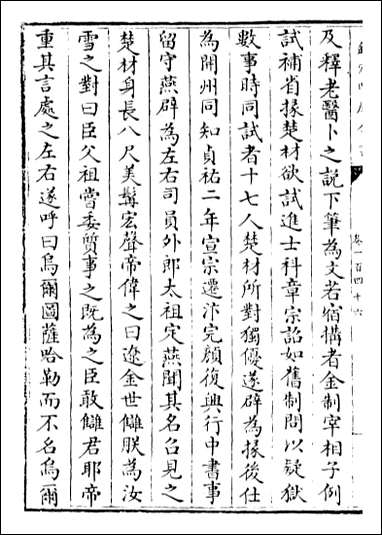 及釋老醫卜之説下筆為文若宿搆者金制宰相子例
試補省掾楚材欲試進士科章宗詔如舊制問以疑獄
數事時同試者十七人楚材所對獨優遂辟為掾後仕
為開州同知貞祐二年宣宗遷汴完顔復興行中書事
留守燕辟為左右司員外郎太祖定燕聞其名召見之
楚材身長八尺美髯宏聲帝偉之曰遼金世讎朕為汝
雪之對曰臣父祖嘗委質事之既為之臣敢讎君耶帝
重其言處之左右遂呼曰烏爾圖薩哈勒而不名烏爾
卷一百四十六